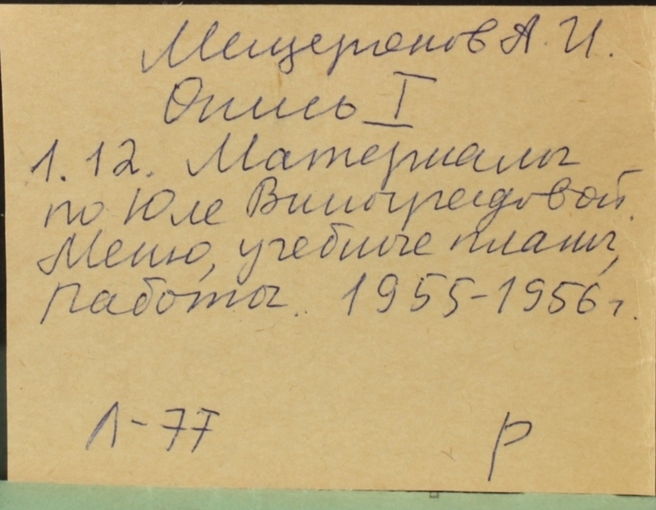 Мещеряков А. И.
Опись I
1.12. Материалы
по Юле Виноградовой.
Меню, учебные планы,
работы. 1955-1956 г.
Л-77 р